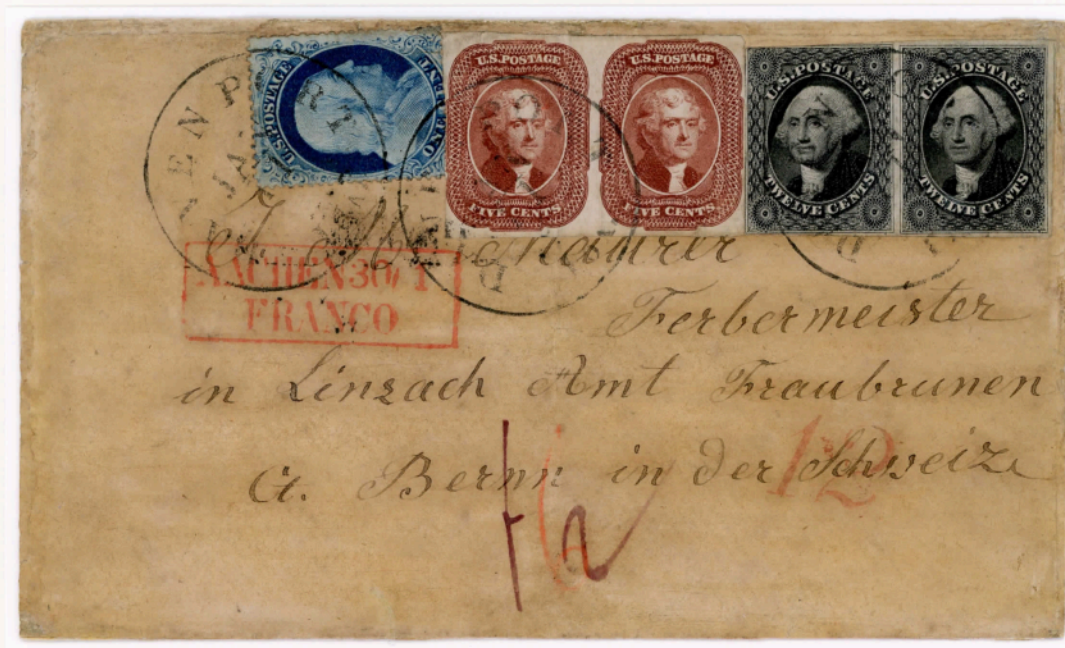 U.S. POSTAGE
ONE CENT
U.S. POSTAGE
FIVE CENTS
U.S. POSTAGE
FIVE CENTS
U.S. POSTAGE
TWELVE CENTS
U.S. POSTAGE
TWELVE CENTS
AACHEN 30/1
FRANCO
Ferbermeister
in Linzach Amt Fraubrunen
Ct. Bernn in der Schweiz
12